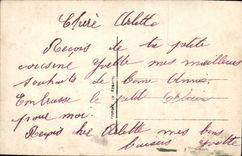 Chère Arlette
Reçois de ta petite
cousine Yvette mes meilleurs
souhaits de bonne Année
Embrasse le petit
pour moi.
Reçois chère Arlette mes bons
baisers Yvette